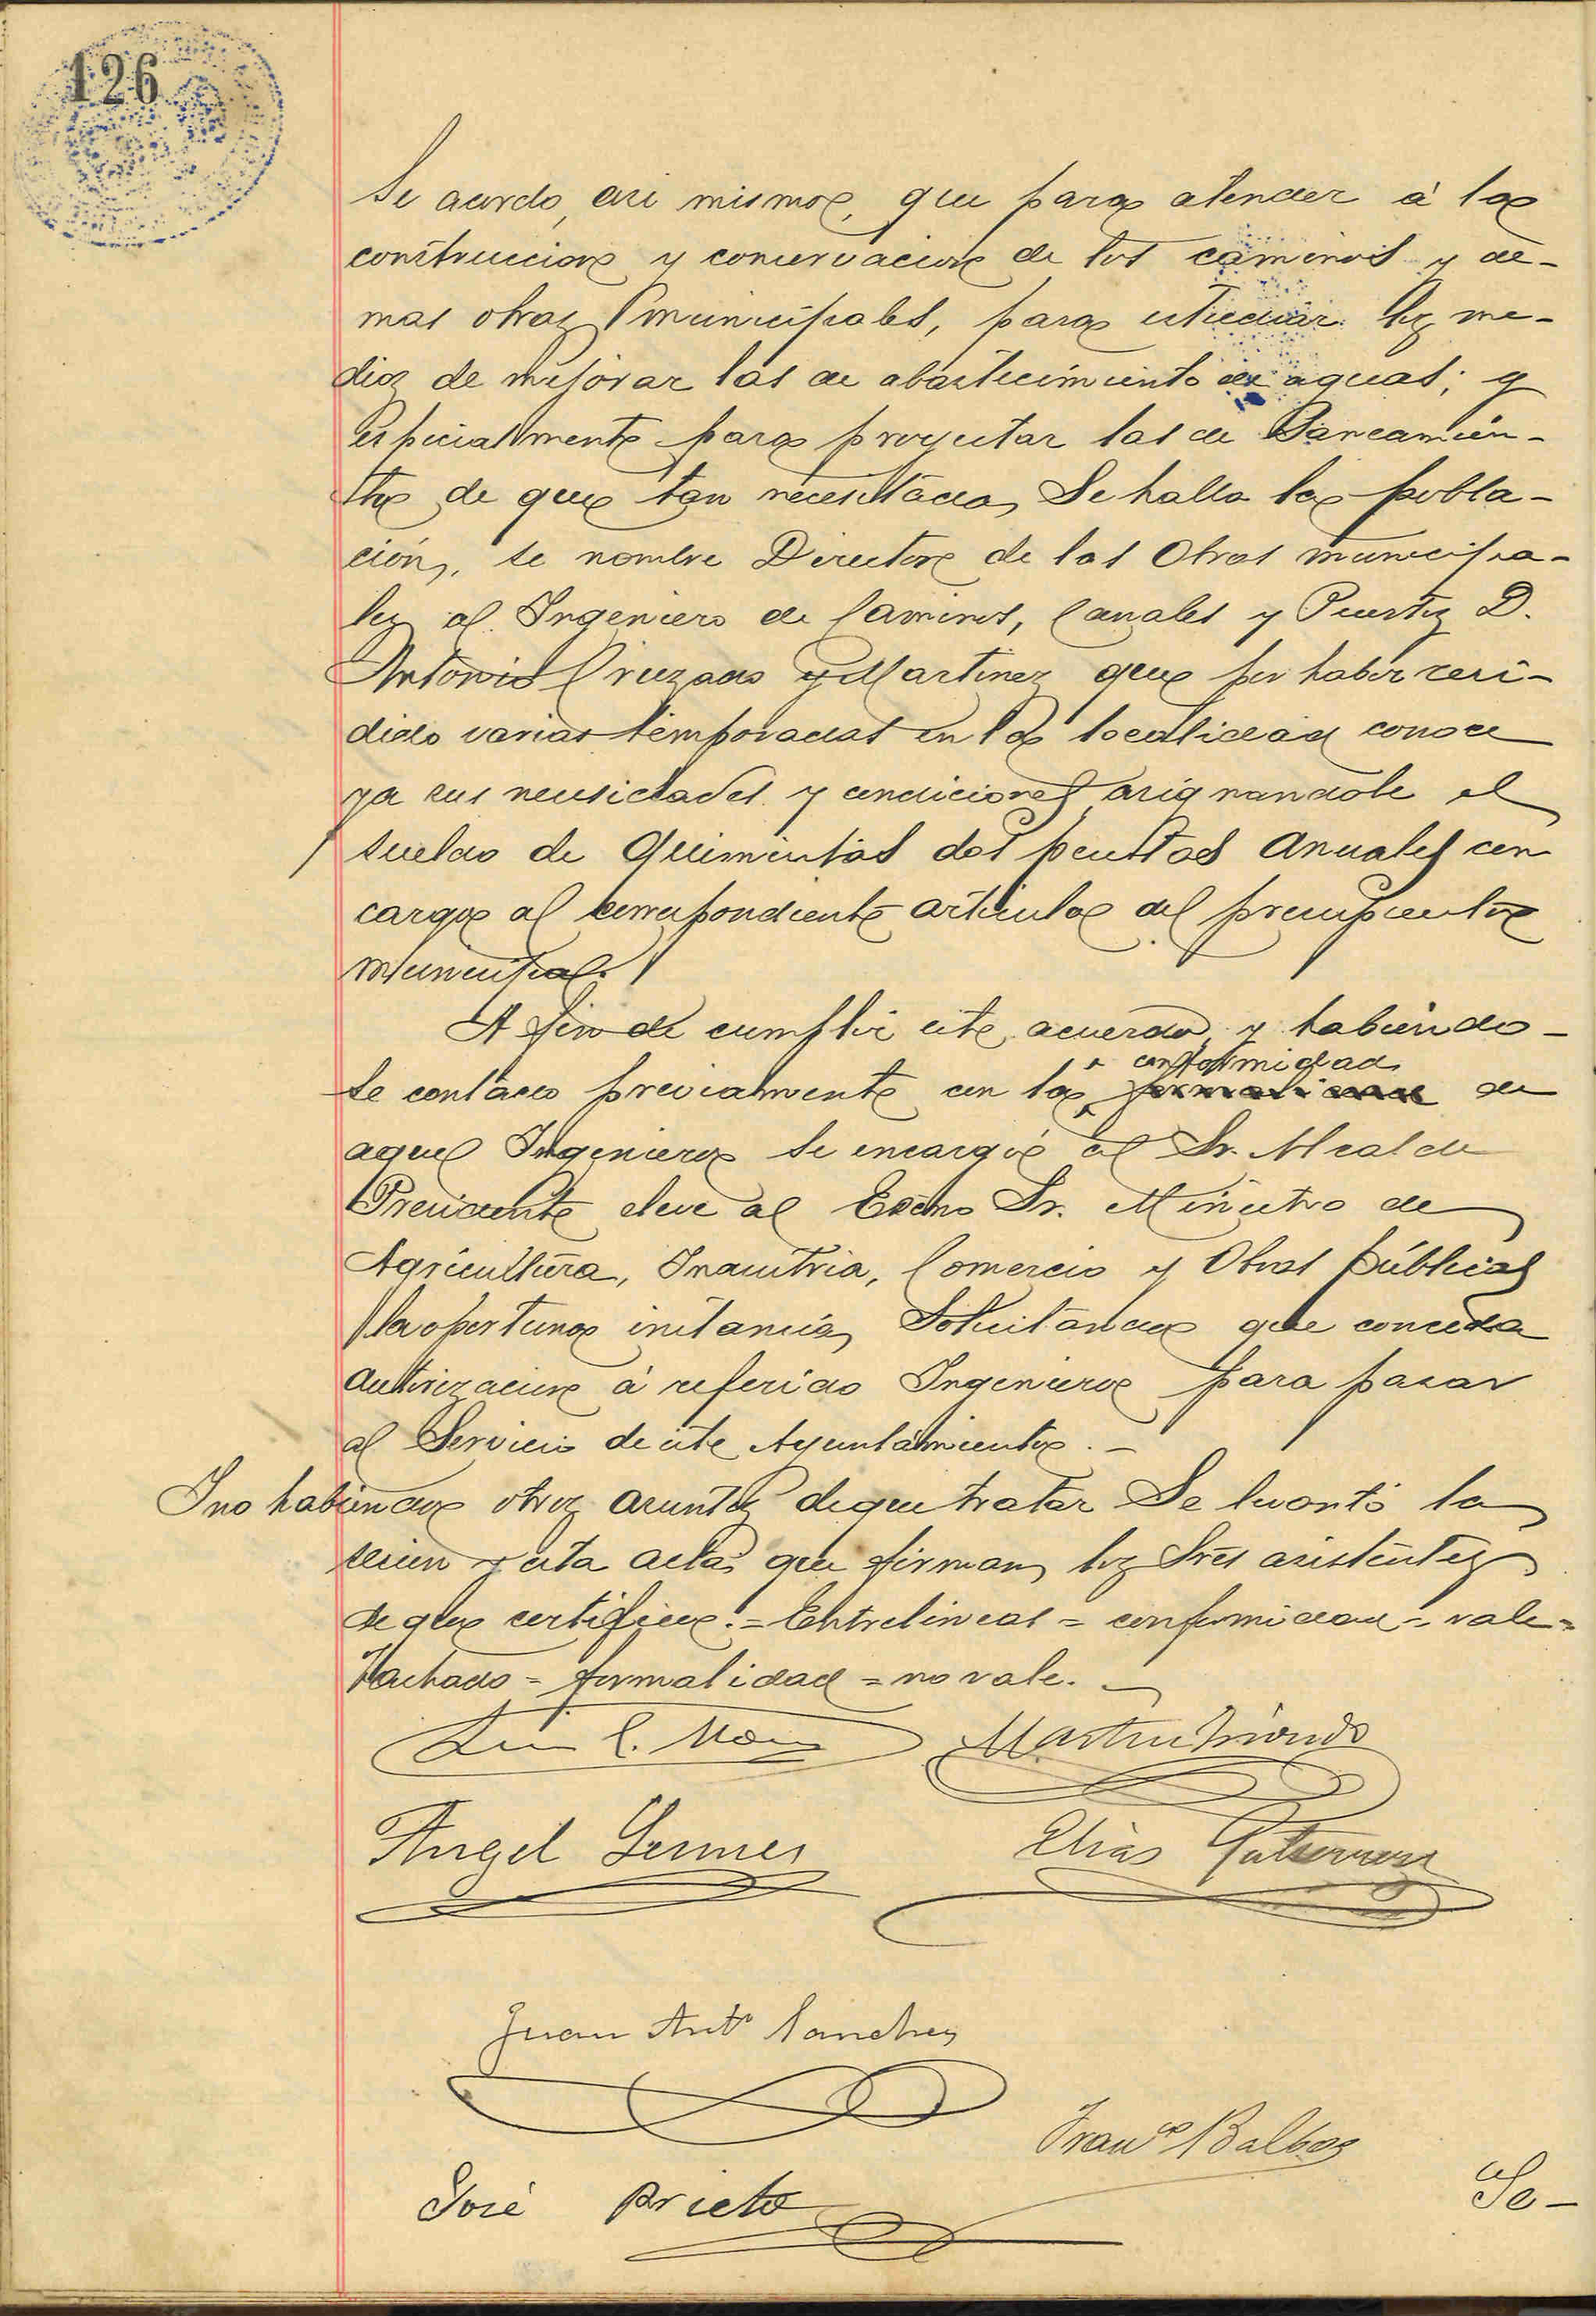 126
Se acordo, asi mismo, que para atender á la
construccion y conservacion de los caminos y de-
mas obras municipales, para estudiar los me-
dios de mejorar las de abastecimiento de aguas; y
especialmente para proyectar las de Saneamien-
to de que tan necesitada, Se halla la pobla-
ción, se nombre Director de las Obras municipa-
les al Ingeniero de Caminos, Canales y Puertos D.
Antonio Cruzado y Martinez que por haber resi-
dido varias temporadas en la localidad conoce
ya sus necesidades y condiciones asignandole el
sueldo de Quinientas dos pesetas anuales con
cargo al correspondiente artículo del presupuesto
municipal.
A fin de cumplir este acuerdo y habiendo-
conformidad
se contado previamente con la formalidad de
aquel Ingeniero se encargó al Sr. Alcalde
Presidente eleve al Excmo Sr. Ministro de
Agricultura, Industria, Comercio y Obras públicas
la oportuna instancia, Solicitando que conceda
autorizacion á referido Ingeniero para pasar
al Servicio de este Ayuntamiento. -
Y no habiendo otros asuntos de que tratar Se levantó la
sesion y esta acta que firman los Sres asistentes
de que certifico. = Entrelineas = conformidad = vale =
Tachado = formalidad = no vale. -
Luis C.
Angel
Elias Gutierrez
Juan Antº Sanchez
Francº Balboa
José Prieto
Se-